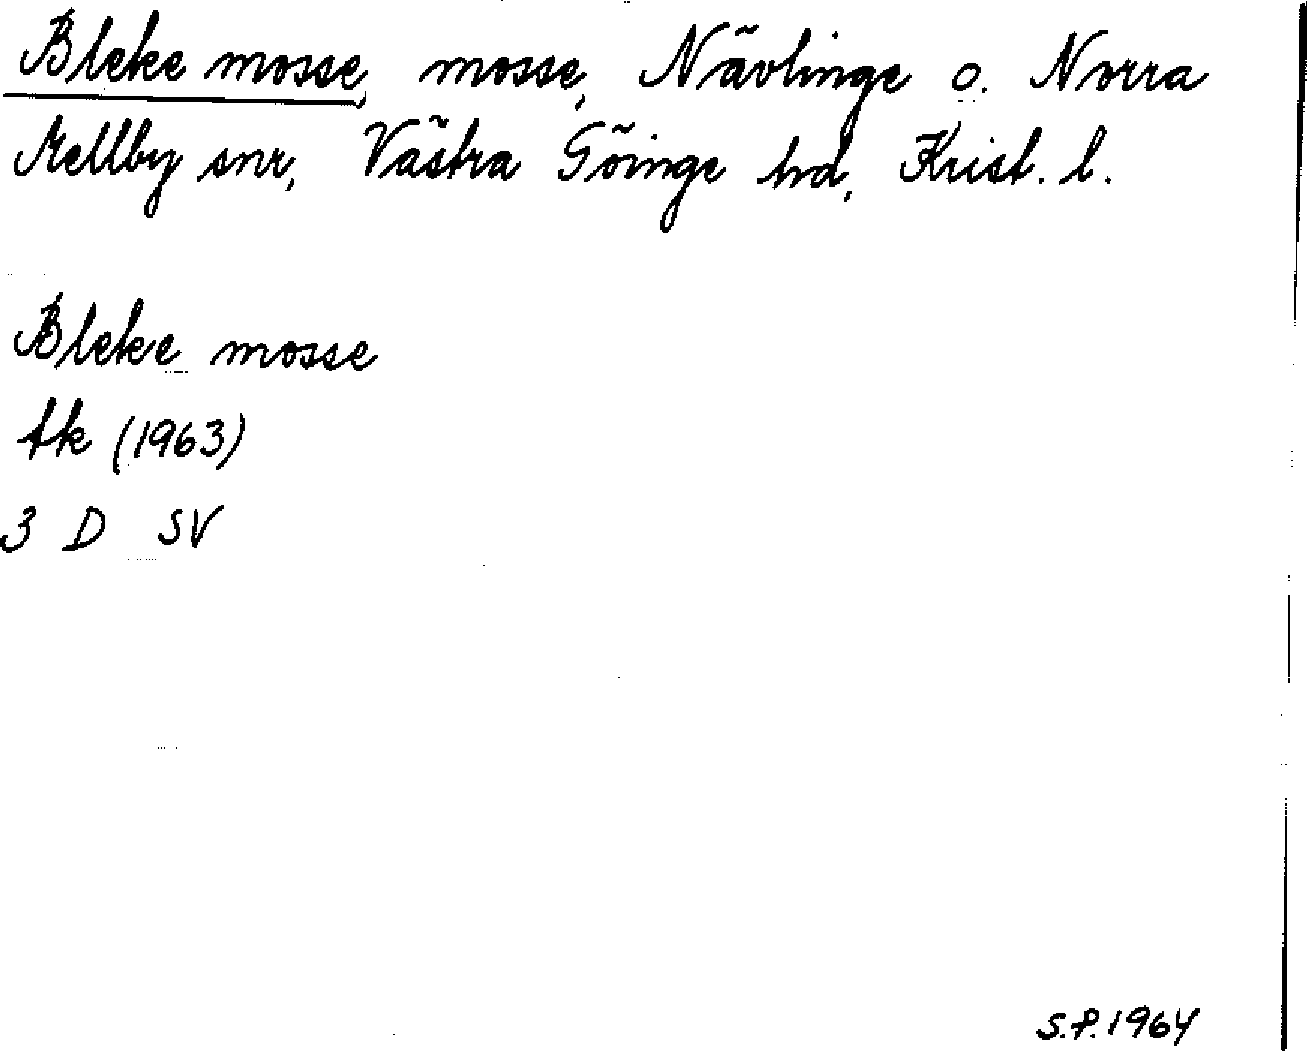 Bleke mosse, mosse, Nävlinge o. Norra
Mellby snr, Västra Göinge hd, Krist. l.
Bleke mosse
tk (1963)
3 D SV
S.P. 1964